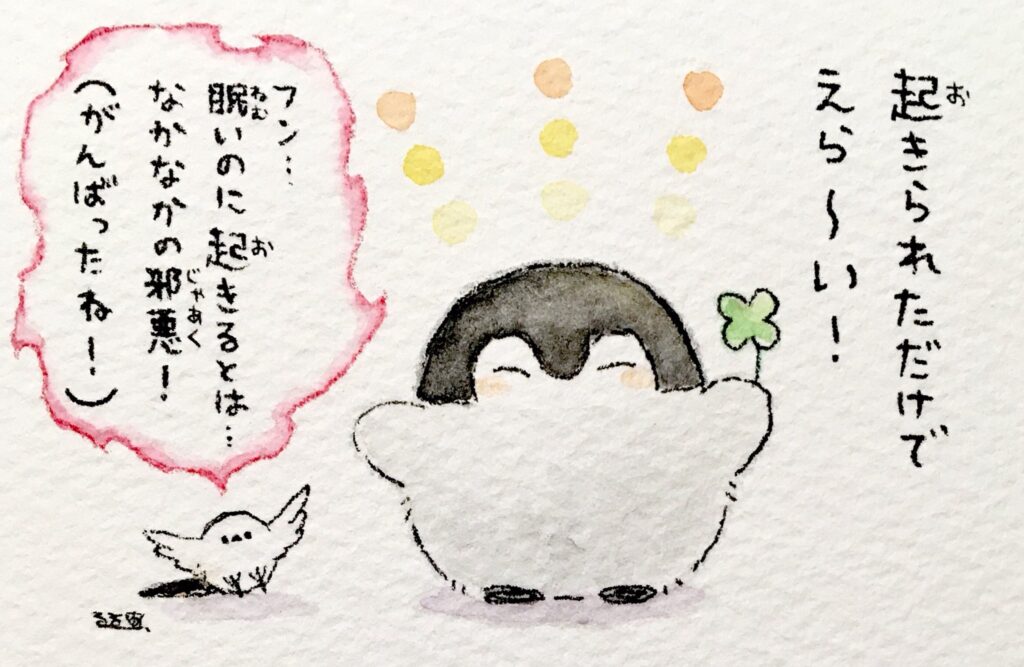 起きられただけで
えら〜い！
フン…
眠いのに起きるとは…
なかなかの邪悪！
（がんばったね！）
るるてあ